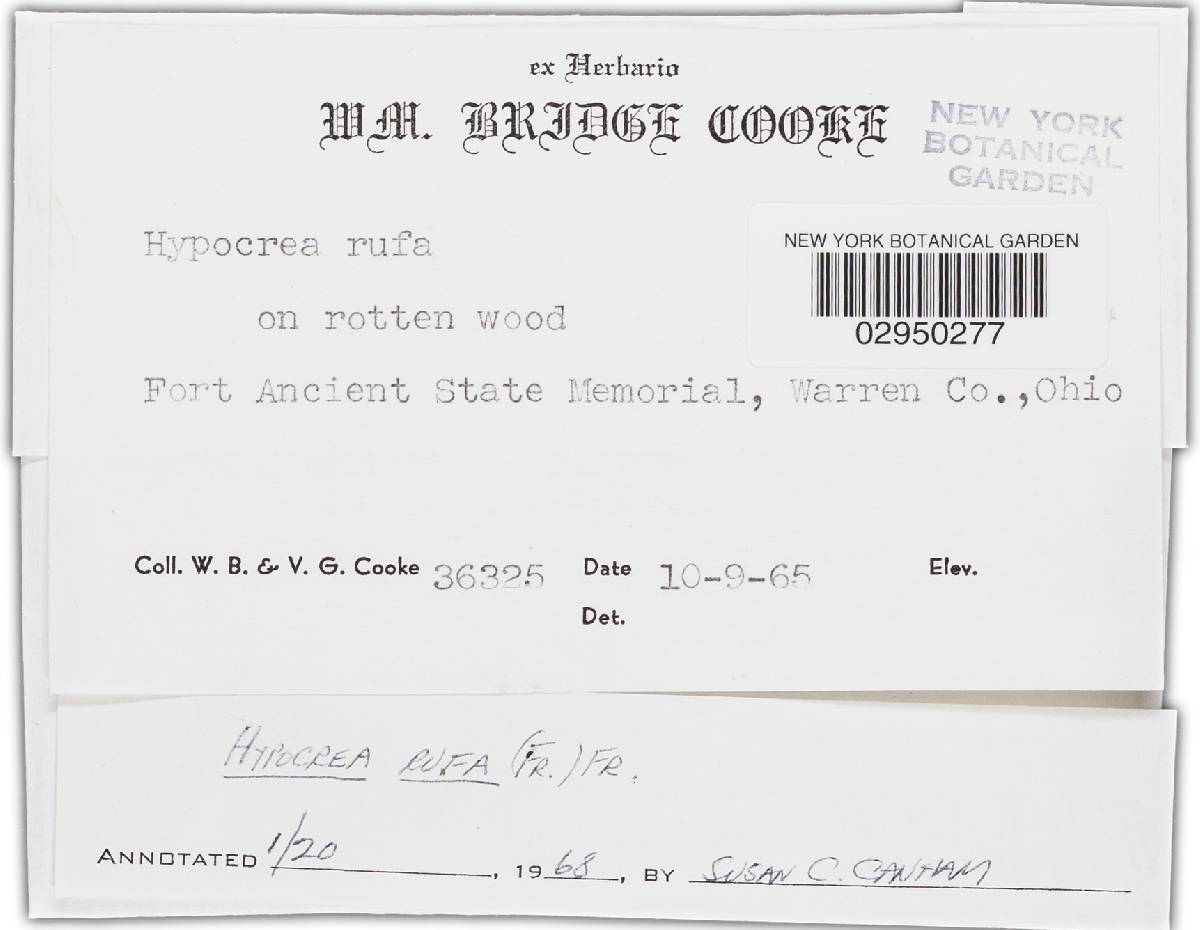 ex Herbario
WM. BRIDGE COOKE
NEW YORK
BOTANICAL
GARDEN
Hypocrea rufa
NEW YORK BOTANICAL GARDEN
02950277
on rotten wood
Fort Ancient State Memorial, Warren Co.,Ohio
Coll. W. B. & V. G. Cooke 36325 Date 10-9-65 Elev.
Det.
HYPOCREA RUFA (FR.) FR.
ANNOTATED 1/20, 1968, BY SUSAN C. CANHAM